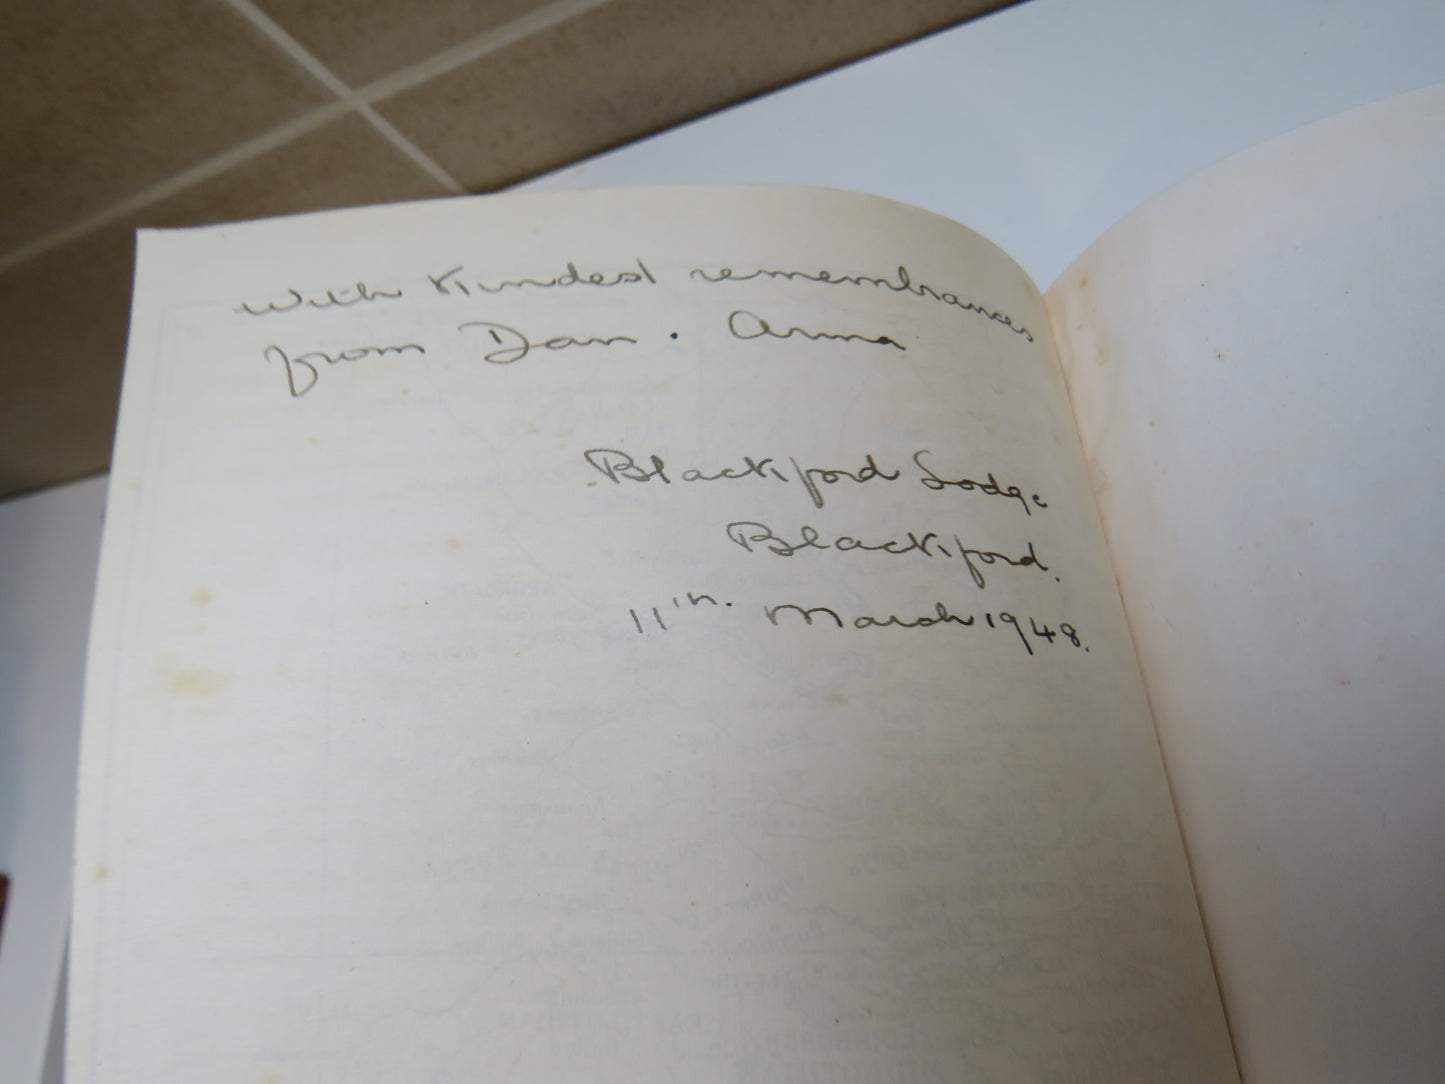 with kindest remembrances
from Dan. Anna
Blackford Lodge
Blackford.
11th. March 1948.